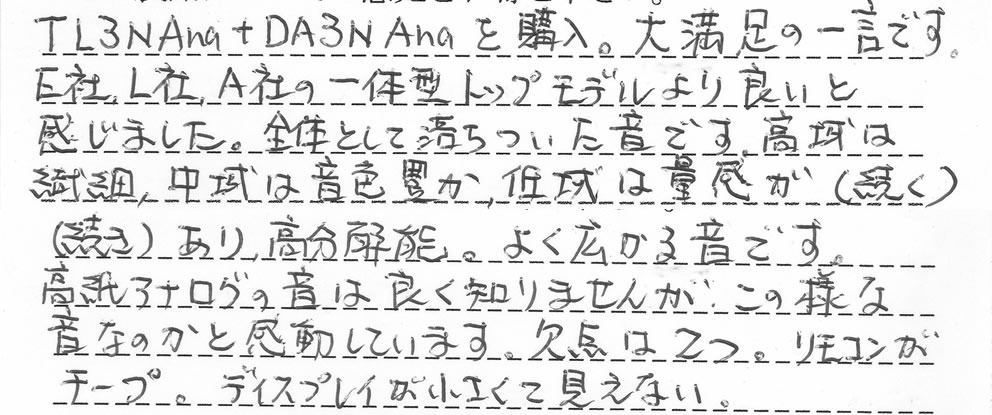 TL3NAna+DA3N Anaを購入。大満足の一言です。
E社、L社、A社の一体型トップモデルより良いと
感じました。全体として落ちついた音です。高域は
繊細、中域は音色豊か、低域は量感が(続く)
(続き)あり、高分解能。よく広がる音です。
高級アナログの音は良く知りませんが、この様な
音なのかと感動しています。欠点は2つ。リモコンが
チープ。ディスプレイが小さくて見えない。